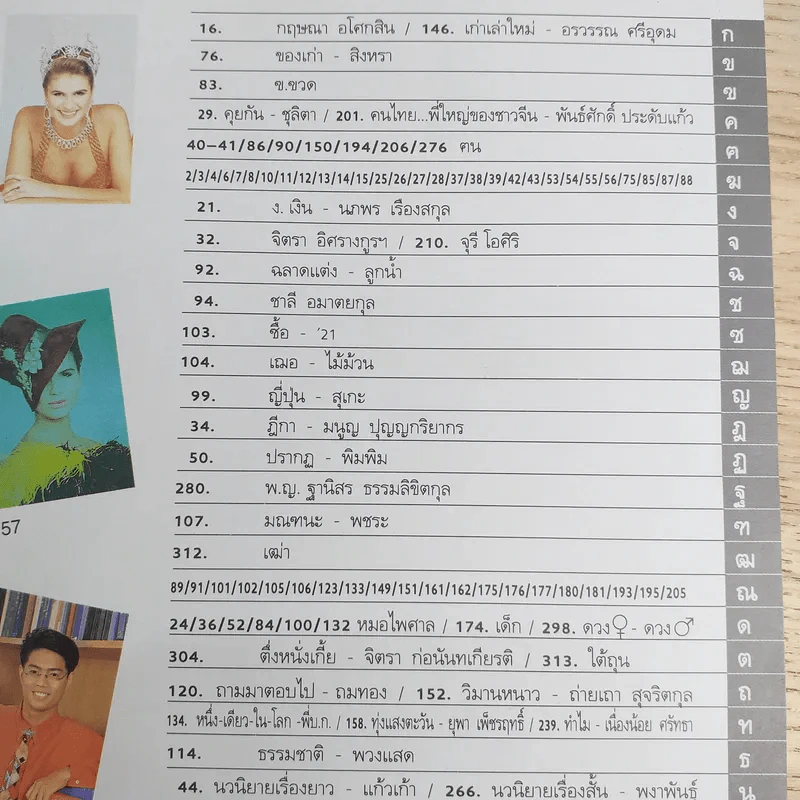 16. กฤษณา อโศกสิน / 146. เก่าเล่าใหม่ - อรวรรณ ศรีอุดม ก
76. ของเก่า - สิงหรา ข
83. ฃ.ขวด ฃ
29. คุยกัน - ชุลิตา / 201. คนไทย...พี่ใหญ่ของชาวจีน - พันธ์ศักดิ์ ประดับแก้ว ค
40–41/86/90/150/194/206/276 ฅน ฅ
2/3/4/6/7/8/10/11/12/13/14/15/25/26/27/28/37/38/39/42/43/53/54/55/56/75/85/87/88 ฆ
21. ง. เงิน - นภพร เรืองสกุล ง
32. จิตรา อิศรางกูรฯ / 210. จุรี โอศิริ จ
92. ฉลาดแต่ง - ลูกน้ำ ฉ
94. ชาลี อมาตยกุล ช
103. ซื้อ - '21 ซ
104. เฌอ - ไม้ม้วน ฌ
99. ญี่ปุ่น - สุเกะ ญ
34. ฎีกา - มนูญ ปุญญกริยากร ฎ
50. ปรากฏ - พิมพิม ฏ
280. พ.ญ. ฐานิสร ธรรมลิขิตกุล ฐ
107. มณฑนะ - พชระ ฑ
312. เฒ่า ฒ
89/91/101/102/105/106/123/133/149/151/161/162/175/176/177/180/181/193/195/205 ณ
24/36/52/84/100/132 หมอไพศาล / 174. เด็ก / 298. ดวง♀ - ดวง♂ ด
304. ตึ่งหนั่งเกี้ย - จิตรา ก่อนันทเกียรติ / 313. ใต้ถุน ต
120. ถามมาตอบไป - ถมทอง / 152. วิมานหนาว - ถ่ายเถา สุจริตกุล ถ
134. หนึ่ง-เดียว-ใน-โลก -พี่บ.ก. / 158. ทุ่งแสงตะวัน - ยุพา เพ็ชรฤทธิ์ / 239. ทำไม - เนื่องน้อย ศรัทธา ท
114. ธรรมชาติ - พวงแสด ธ
44. นวนิยายเรื่องยาว - แก้วเก้า / 266. นวนิยายเรื่องสั้น - พงาพันธุ์ น
57